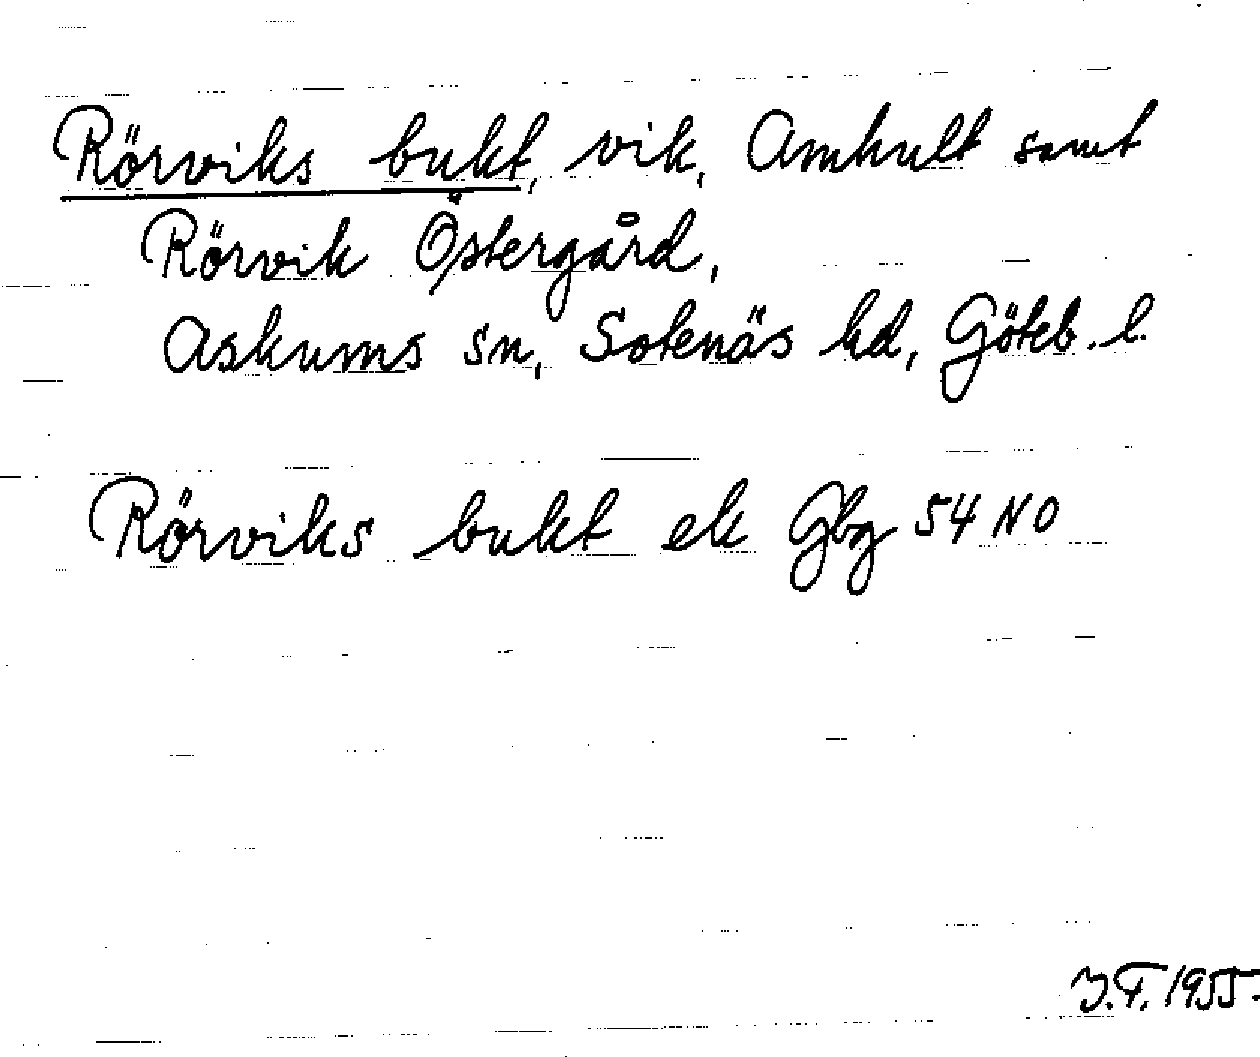 Rörviks bukt, vik, Amhult samt
Rörvik Östergård,
Askums sn, Sotenäs hd, Göteb. l.
Rörviks bukt ek Gbg 54 NO
J.F. 1955.